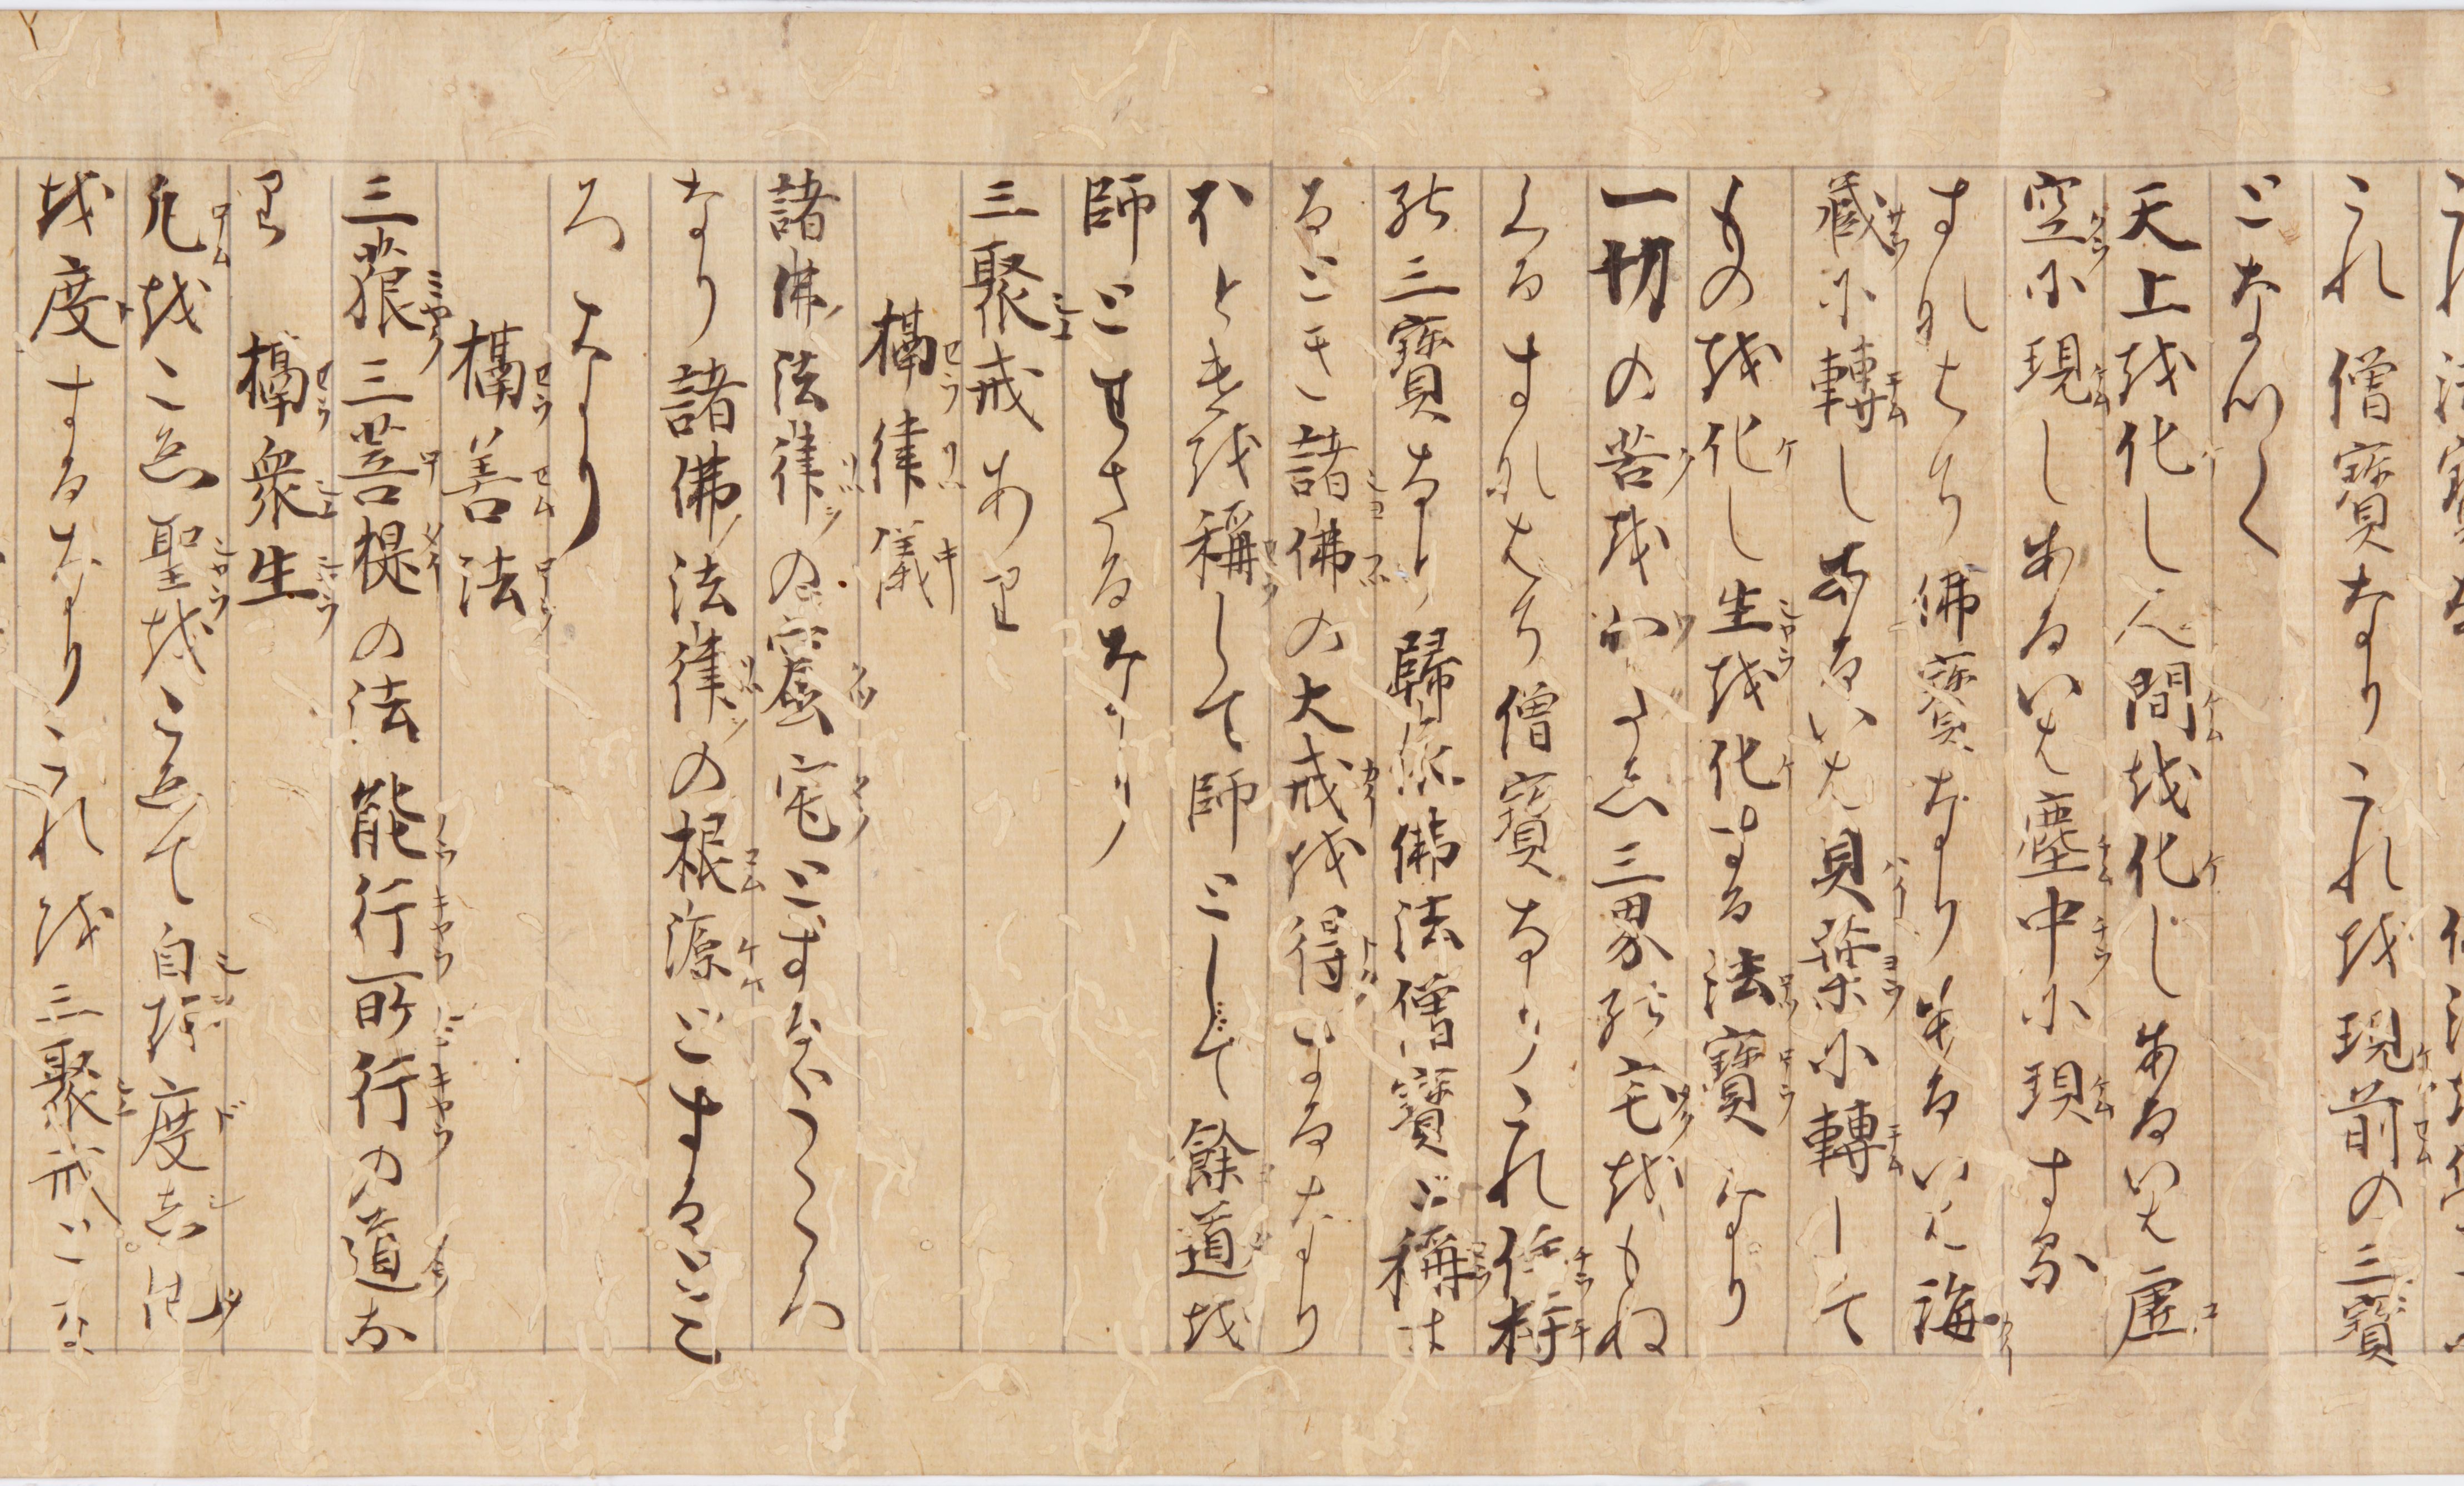 これ僧寳なりこれを現前の三寳
となつく
天上を化し人間を化しあるいは虚
空に現しあるいは塵中に現する
すなはち佛寳なりあるいは海
藏に轉しあるいは貝葉に轉して
ものを化し生を化する法寳なり
一切の苦をわたし三界の宅をもぬ
くるすなはち僧寳なりこれ住持
の三寳なり歸依佛法僧寳と稱す
るとき諸佛の大戒を得するなり
ほとけを稱して師として餘道を
師とせさるなり
三聚戒あり
攝律儀
諸佛法律の窟宅とするところ
なり諸佛法律の根源とするとこ
ろなり
攝善法
三藐三菩提の法能行所行の道な
り　攝衆生
凡をこゑ聖をこゑて自を度し他
を度するなりこれを三聚戒とな